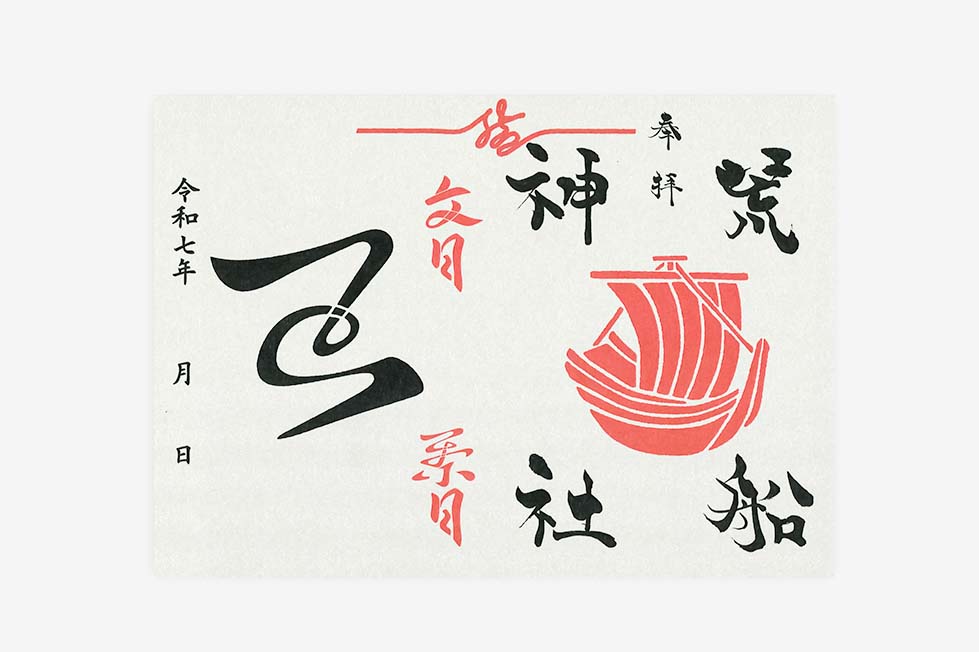 奉拝
荒船
神社
文月
葉月
令和七年 月 日